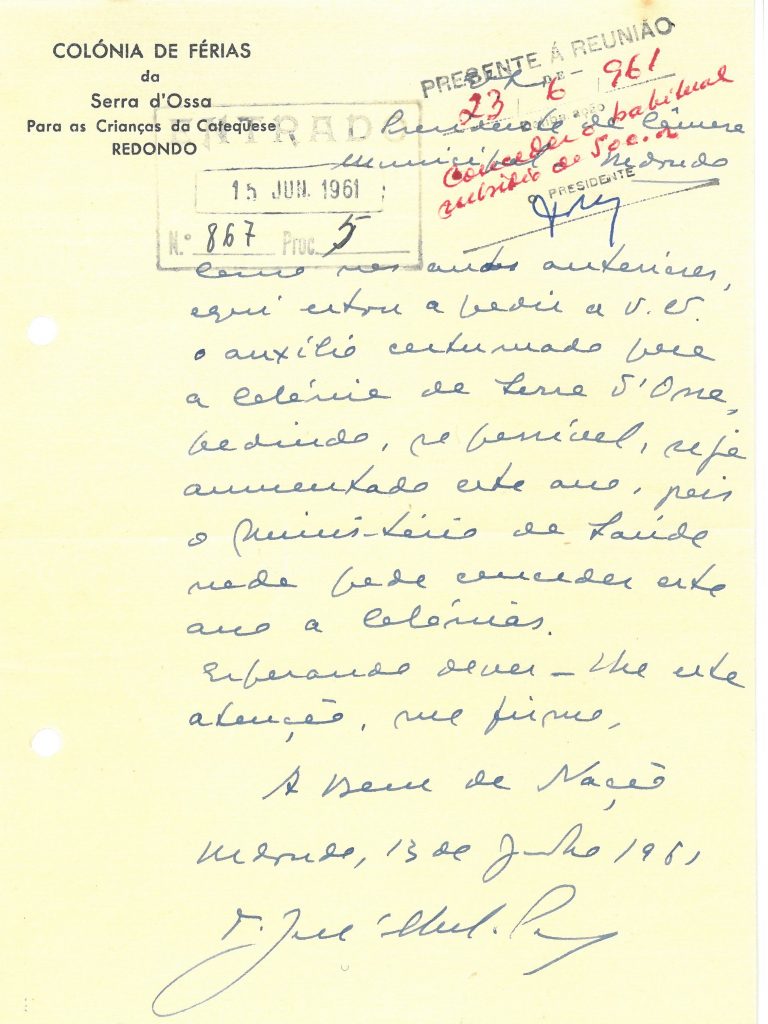 COLÓNIA DE FÉRIAS
da
Serra d'Ossa
Para as Crianças da Catequese
REDONDO
PRESENTE Á REUNIÃO
DE
23 / 6 / 961
Conceder o habitual
subsídio de 500.00
O PRESIDENTE
ENTRADO
15 JUN. 1961
N.º 867 Proc. 5
Presidente da Câmara
Municipal Redondo
Como nos anos anteriores,
aqui estou a pedir a V. Ex.
o auxílio costumado para
a Colónia da Serra d'Ossa,
pedindo, se possível, seja
aumentado este ano, pois
o Ministério da Saúde
nada pode conceder este
ano a Colónias.
Esperando dever-lhe esta
atenção, me firmo,
A Bem da Nação
Redondo, 13 de Junho 1961
P. José